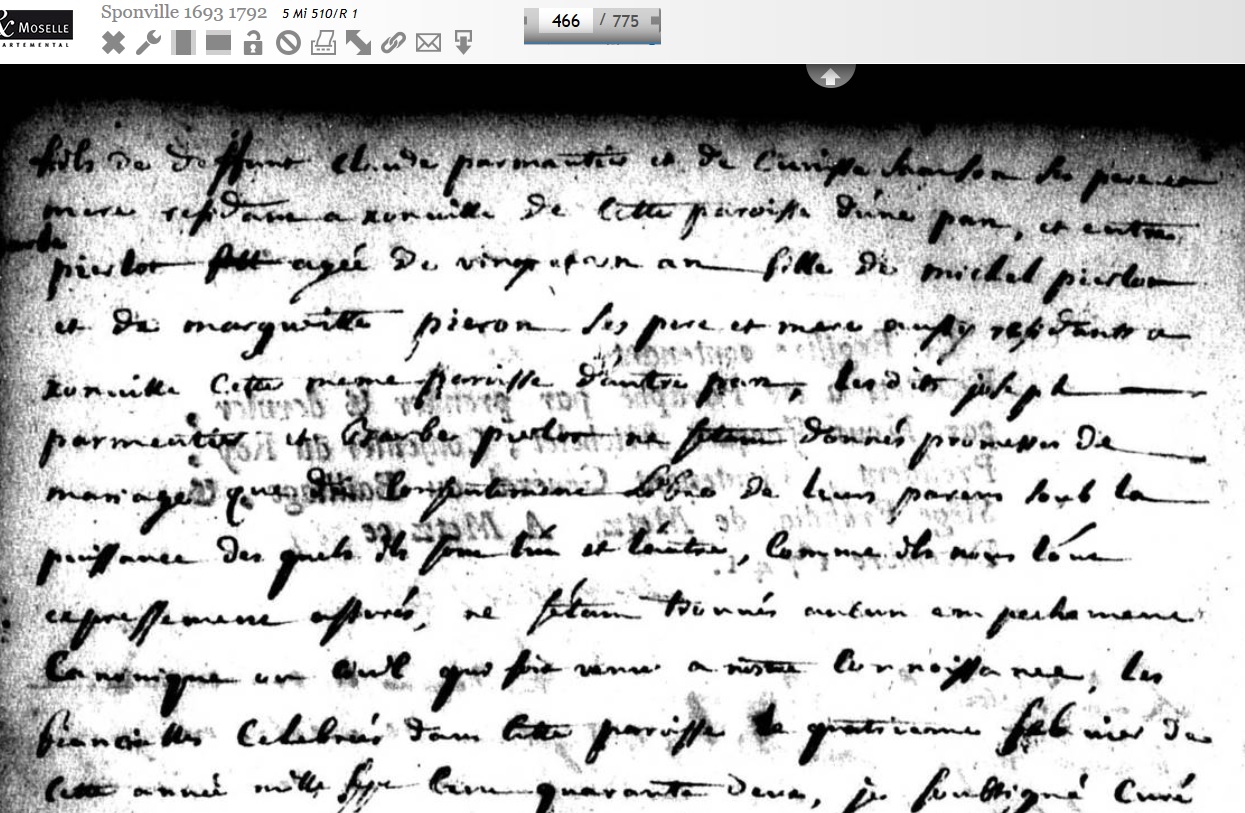 & MOSELLE
ARTEMENTAL
Sponville 1693 1792 5 Mi 510/R 1
466 / 775
fils de deffunt claude parmantier et de hanson ses pere et
mere residant a xonville de cette paroisse d'une part, et entre
barbe
pierlot agée de vingt et un an fille de michel pierlot
et de marguitte pieron ses pere et mere aussy residants a
xonville cette meme paroisse d'autre part, lesdits joseph
parmentier et Barbe pierlot ne s'etant donnés promesses de
mariage que du consentement libre de leurs parens soub la
puissance des quels ils sont l'un et l'autre, comme ils nous l'ont
expressement assurés, ne s'etant trouvés aucun empechement
canonique ou civil qui soit venu a notre connoissance, les
fiancailles celebrées dans cette paroisse le quatrieme febvrier de
cette année mille sept cent quarante deux, je soubsigné Curé